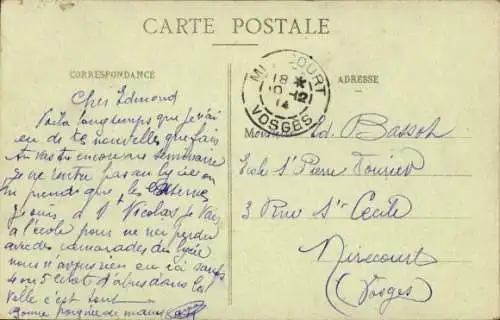 CARTE POSTALE
CORRESPONDANCE
ADRESSE
MIRECOURT
18 *
10-12
14
VOSGES
Cher Edmond
Voila longtemps que je n'ai
eu de tes nouvelles que fais
tu vas tu encore au Seminaire
je ne rentre pas au lycée on
n'y prend que les externes
je suis à St Nicolas de
à l'école pour ne pas perdre
avec des camarades du lycée
nous n'avons rien eu ici sauf
4 ou 5 d'obus dans la
ville c'est tout
bonne poignée de mains
Monsieur Ed. Bassot
Ecole St Pierre Fourier
3 Rue Ste Cecile
Mirecourt
(Vosges)